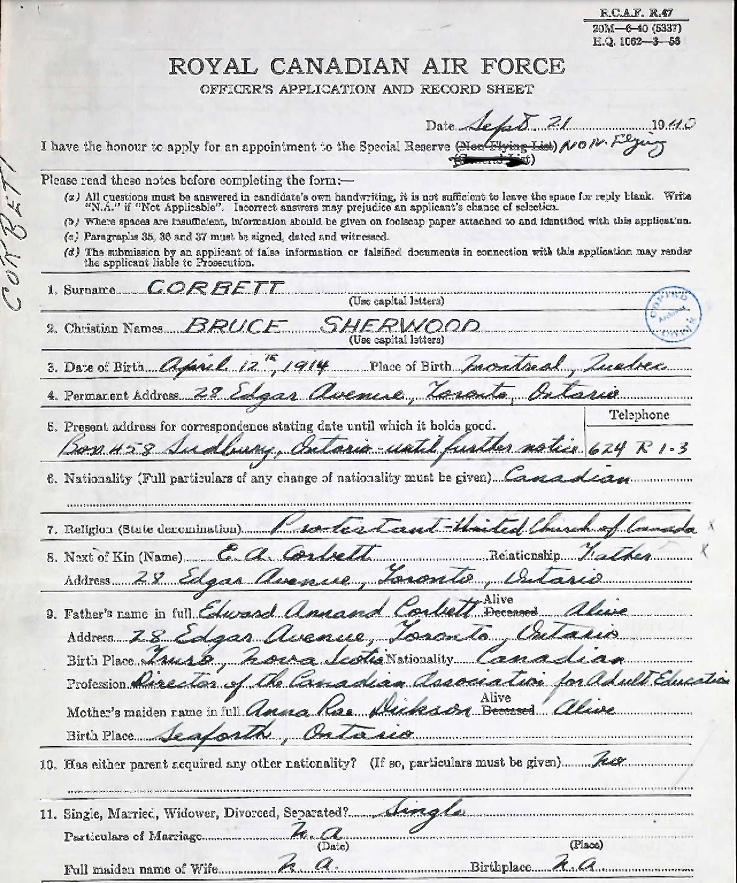 R.C.A.F. R.47
20M—6-40 (5337)
H.Q. 1062—3—53
ROYAL CANADIAN AIR FORCE
OFFICER'S APPLICATION AND RECORD SHEET
Date Sept 21 1940
I have the honour to apply for an appointment to the Special Reserve (Non-Flying List) NON-Flying
(General List)
CORBETT
Please read these notes before completing the form:—
(a) All questions must be answered in candidate's own handwriting, it is not sufficient to leave the space for reply blank. Write
"N.A." if "Not Applicable". Incorrect answers may prejudice an applicant's chance of selection.
(b) Where spaces are insufficient, information should be given on foolscap paper attached to and identified with this application.
(c) Paragraphs 35, 36 and 37 must be signed, dated and witnessed.
(d) The submission by an applicant of false information or falsified documents in connection with this application may render
the applicant liable to Prosecution.
1. Surname CORBETT
(Use capital letters)
2. Christian Names BRUCE SHERWOOD
(Use capital letters)
COPIED
3. Date of Birth April 12th, 1914 Place of Birth Montreal, Quebec
4. Permanent Address 28 Edgar Avenue, Toronto, Ontario
5. Present address for correspondence stating date until which it holds good. Telephone
Box 458 Sudbury, Ontario - until further notice 624 R 1-3
6. Nationality (Full particulars of any change of nationality must be given) Canadian
7. Religion (State denomination) Protestant - United Church of Canada x
8. Next of Kin (Name) E. A. Corbett Relationship Father x
Address 28 Edgar Avenue, Toronto, Ontario
9. Father's name in full Edward Annand Corbett Alive Deceased Alive
Address 28 Edgar Avenue, Toronto, Ontario
Birth Place Truro, Nova Scotia Nationality Canadian
Profession Director of the Canadian Association for Adult Education
Mother's maiden name in full Anna Rae Dickson Alive Deceased Alive
Birth Place Seaforth, Ontario
10. Has either parent acquired any other nationality? (If so, particulars must be given) No
11. Single, Married, Widower, Divorced, Separated? Single
Particulars of Marriage N.A.
(Date) (Place)
Full maiden name of Wife N.A. Birthplace N.A.